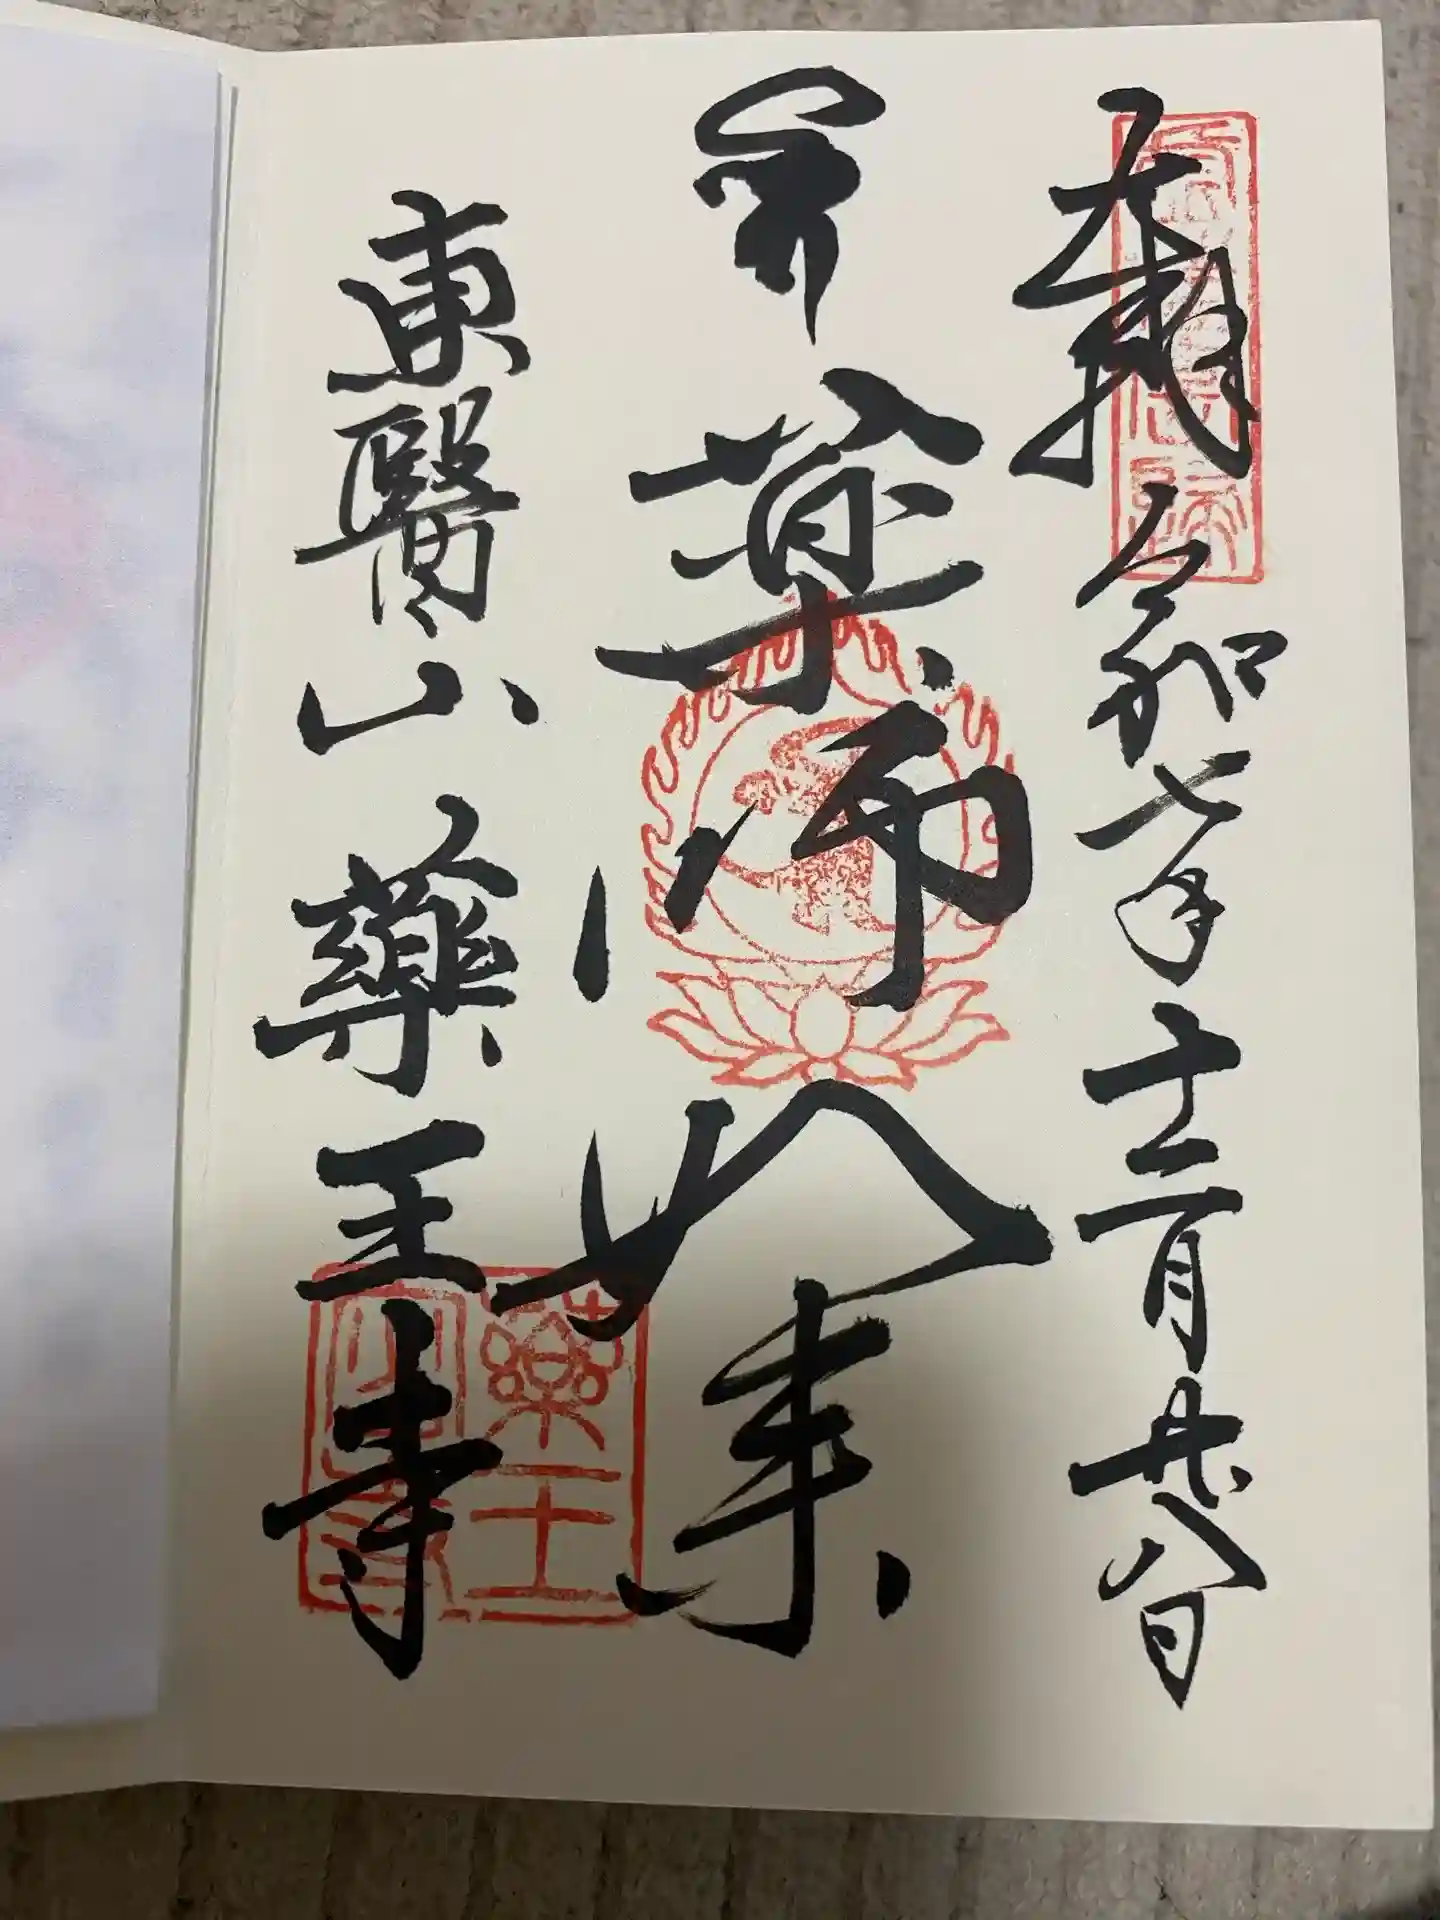 奉拝 令和七年十二月廿八日
薬師如来
東醫山 藥王寺
藥王